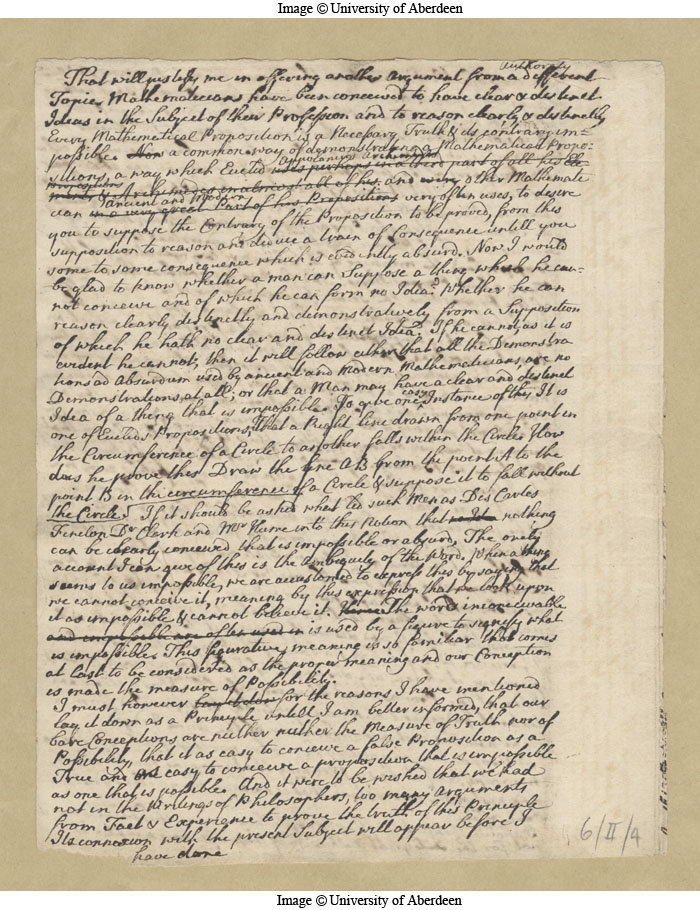 Image © University of Aberdeen
authority
That will justify me in offering another Argument from a different
Topic, Mathematicians have been conceived to have clear & distinct
Ideas in the Subject of their Profession and to reason clearly & distinctly
Every Mathematical Proposition is a Necessary Truth & its contrary im-
possible. Now a common way of demonstrating a Mathematical Propo-
sitions, a way which Euclid Apollonius Archimedes uses perhaps in a third part of all his Ele
propositions
ments & Archimedes in almost all of his and many other Mathemati
ancient and Modern
cian in a very great Part of his Propositions very often uses, to desire
you to suppose the Contrary of the Proposition to be proved, from this
supposition to reason and deduce a train of Consequence untill you
some to some consequence which is evidently absurd. Now I would
be glad to know whether a man can Suppose a thing which he can-
not conceive and of which he can form no Idea? Whether he can
reason clearly distinctly and demonstratively from a Supposition
of which he hath no clear and distinct Idea? If he cannot, as it is
evident he cannot, then it will follow either that all the Demonstra
tions ad Absurdum used by ancient and Modern Mathematicians are no
Demonstrations at all; or that a Man may have a clear and distinct
Idea of a thing that is impossible. To give one easy Instance of this, It is
one of Euclids Propositions, That a Right line drawn from one point in
the Circumference of a Circle to another falls within the Circle How
does he prove this Draw the line AB from the point A to the
point B in the circumference of a Circle & suppose it to fall without
the Circle. If it should be asked what led such Men as Des Cartes
Fenelon Dr Clerk and Mr Hume into this Notion that nothing
can be clearly conceived that is impossible or absurd, The onely
account I can give of this is the Ambiguity of the Word. When a thing
seems to us impossible, we are accustomed to express this by saying that
we cannot conceive it, meaning by this expression that we look upon
it as impossible & cannot believe it. The word inconceivable
and impossible are often used in is used by a figure to signify what
is impossible. This figurative meaning is so familiar that comes
at last to be considered as the proper meaning and our Conception
is made the measure of Possibility.
I must however lay it down for the reasons I have mentioned
lay it down as a Principle untill I am better informed, that our
bare Conceptions are neither neither the Measure of Truth nor of
Possibility, that it as easy to conceive a false Proposition as a
True and as easy to conceive a proposition that is impossible
as one that is possible. And it were to be wished that we had
not in the Writings of Philosophers, too many Arguments
from Fact & Experience to prove the truth of this Principle
Its connexion with the present Subject will appear before I
have done
6/II/4
Image © University of Aberdeen